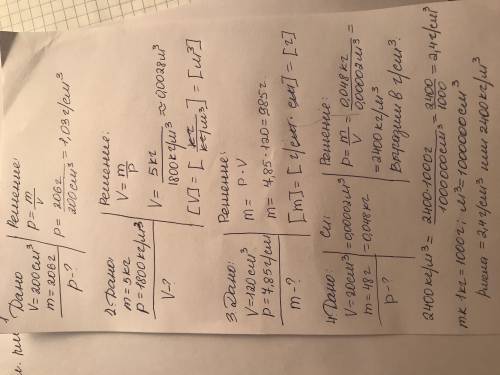 Дано
V=200см³
m=206г
ρ-?
Решение:
ρ= m/V
ρ= 206г/200см³ = 1,03 г/см³
2. Дано:
m=5кг
ρ=1800кг/м³
V-?
Решение:
V= m/ρ
V= 5кг/1800кг/м³ ≈0,0028м³
[V]=[кг/кг/м³]=[м³]
3. Дано:
V=120см³
ρ=4,85г/см
m-?
Решение:
m= ρ·V
m= 4,85·120=985г
[m]=[г/см·см]=[г]
4. Дано:
V=20см³
m=48г
ρ-?
Си:
=0,00002м³
=0,048кг
Решение:
ρ= m/V = 0,048кг/0,00002м³ =
=2400кг/м³
Выразим в г/см³:
2400кг/м³= 2400·1000г/1000000см³ = 2400/1000 = 2,4г/см³
тк 1кг=1000г; м³=1000000см³
ρ = 2,4г/см³ или 2400кг/м³